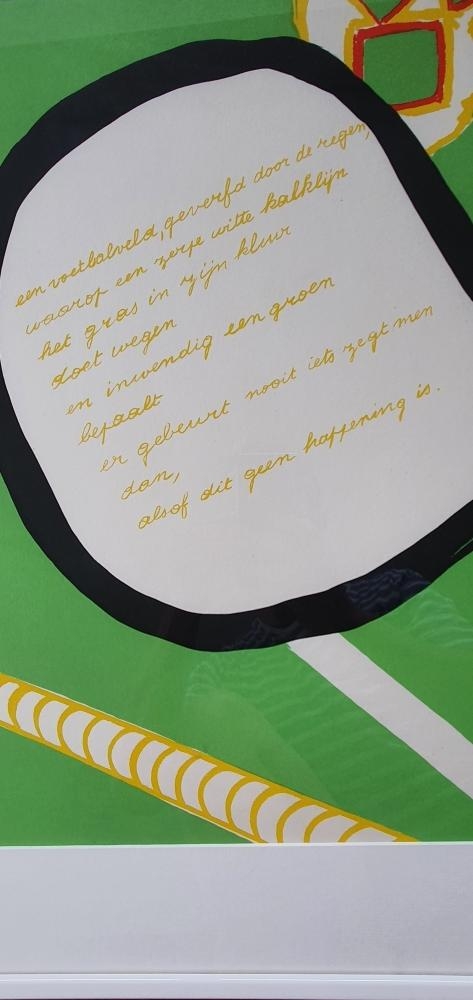 een voetbalveld, geverfd door de regen,
waarop een zerpe witte kalklijn
het gras in zijn kleur
doet wegen
en inwendig een groen
bepaalt
er gebeurt nooit iets zegt men
dan,
alsof dit geen happening is.